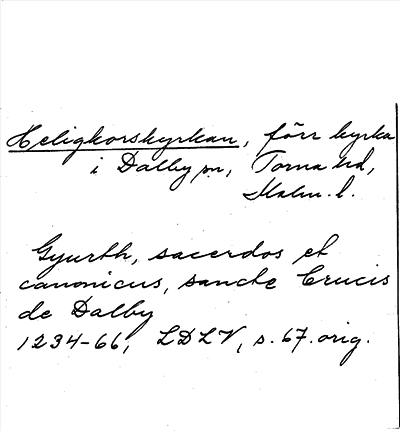 Heligkorskyrkan, förr kyrka
i Dalby sn, Torna hd,
Malm. l.
Gyurth, sacerdos et
canonicus, sancte Crucis
de Dalby
1234-66, LDLV, s. 67. orig.